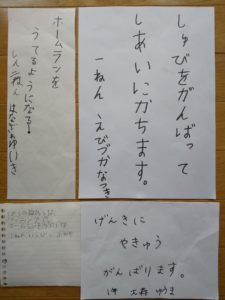 しゅびをがんばって
しあいにかちます。
一ねん えびづかなつき
ホームランを
うてるようになる!
しん二ねん はなざわゆいき
げんきに
やきゅう
がんばります。
1年 大森 ゆうま